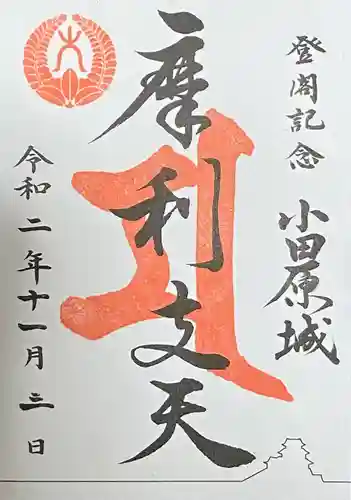 登閣記念
小田原城
摩利支天
令和二年十一月三日
大